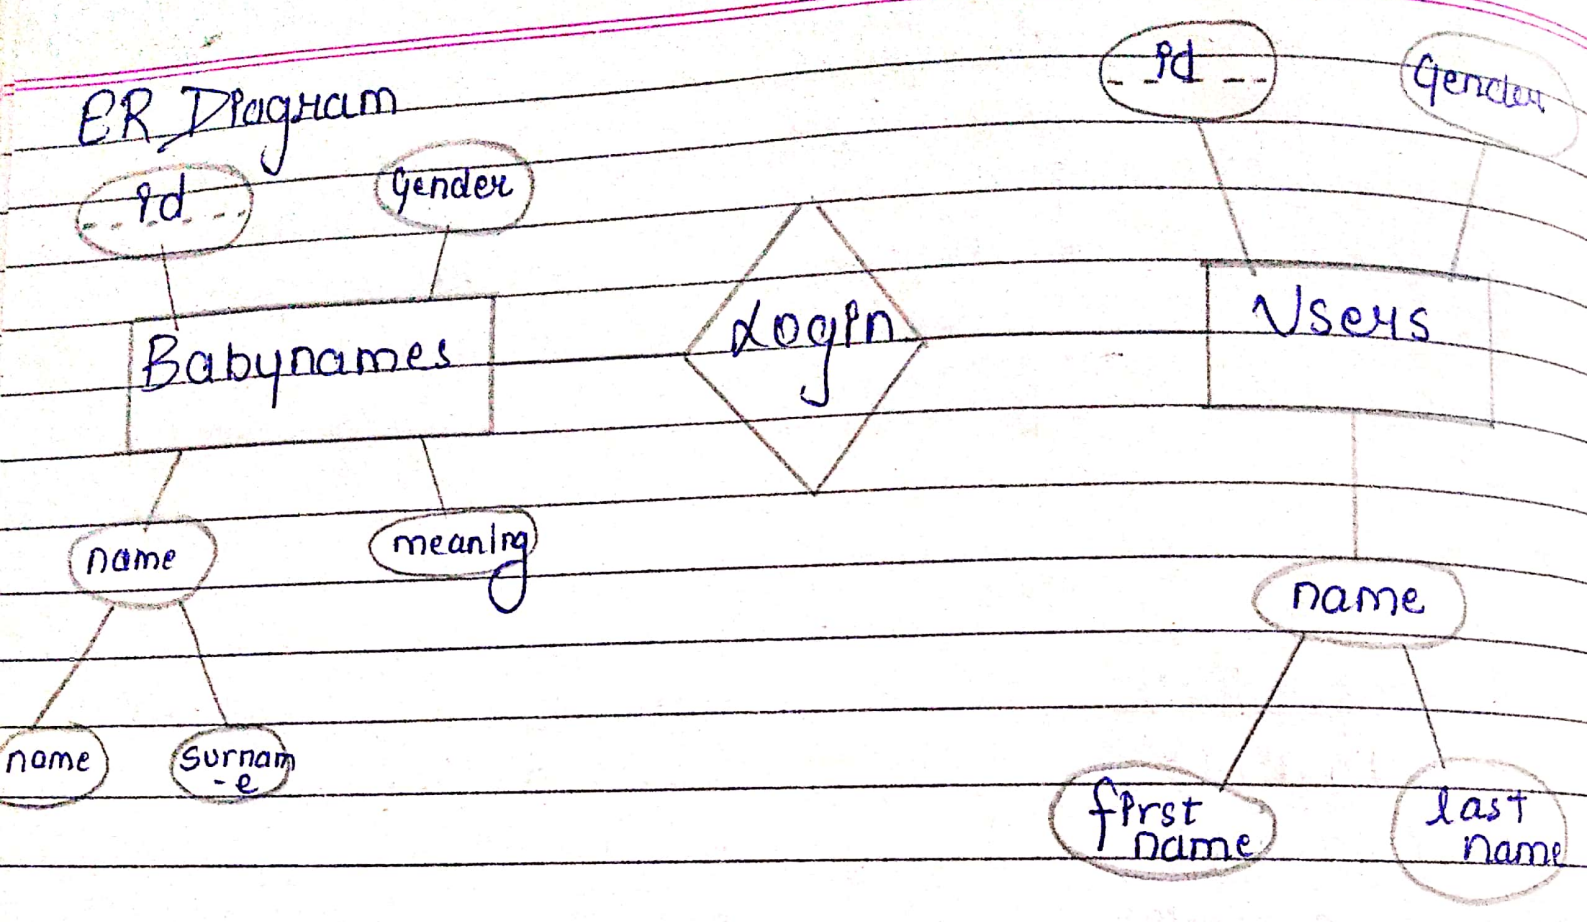 ER Diagram
id
Gender
id
Gender
Babynames
Login
Users
name
meaning
name
name
surnam
-e
first
name
last
name